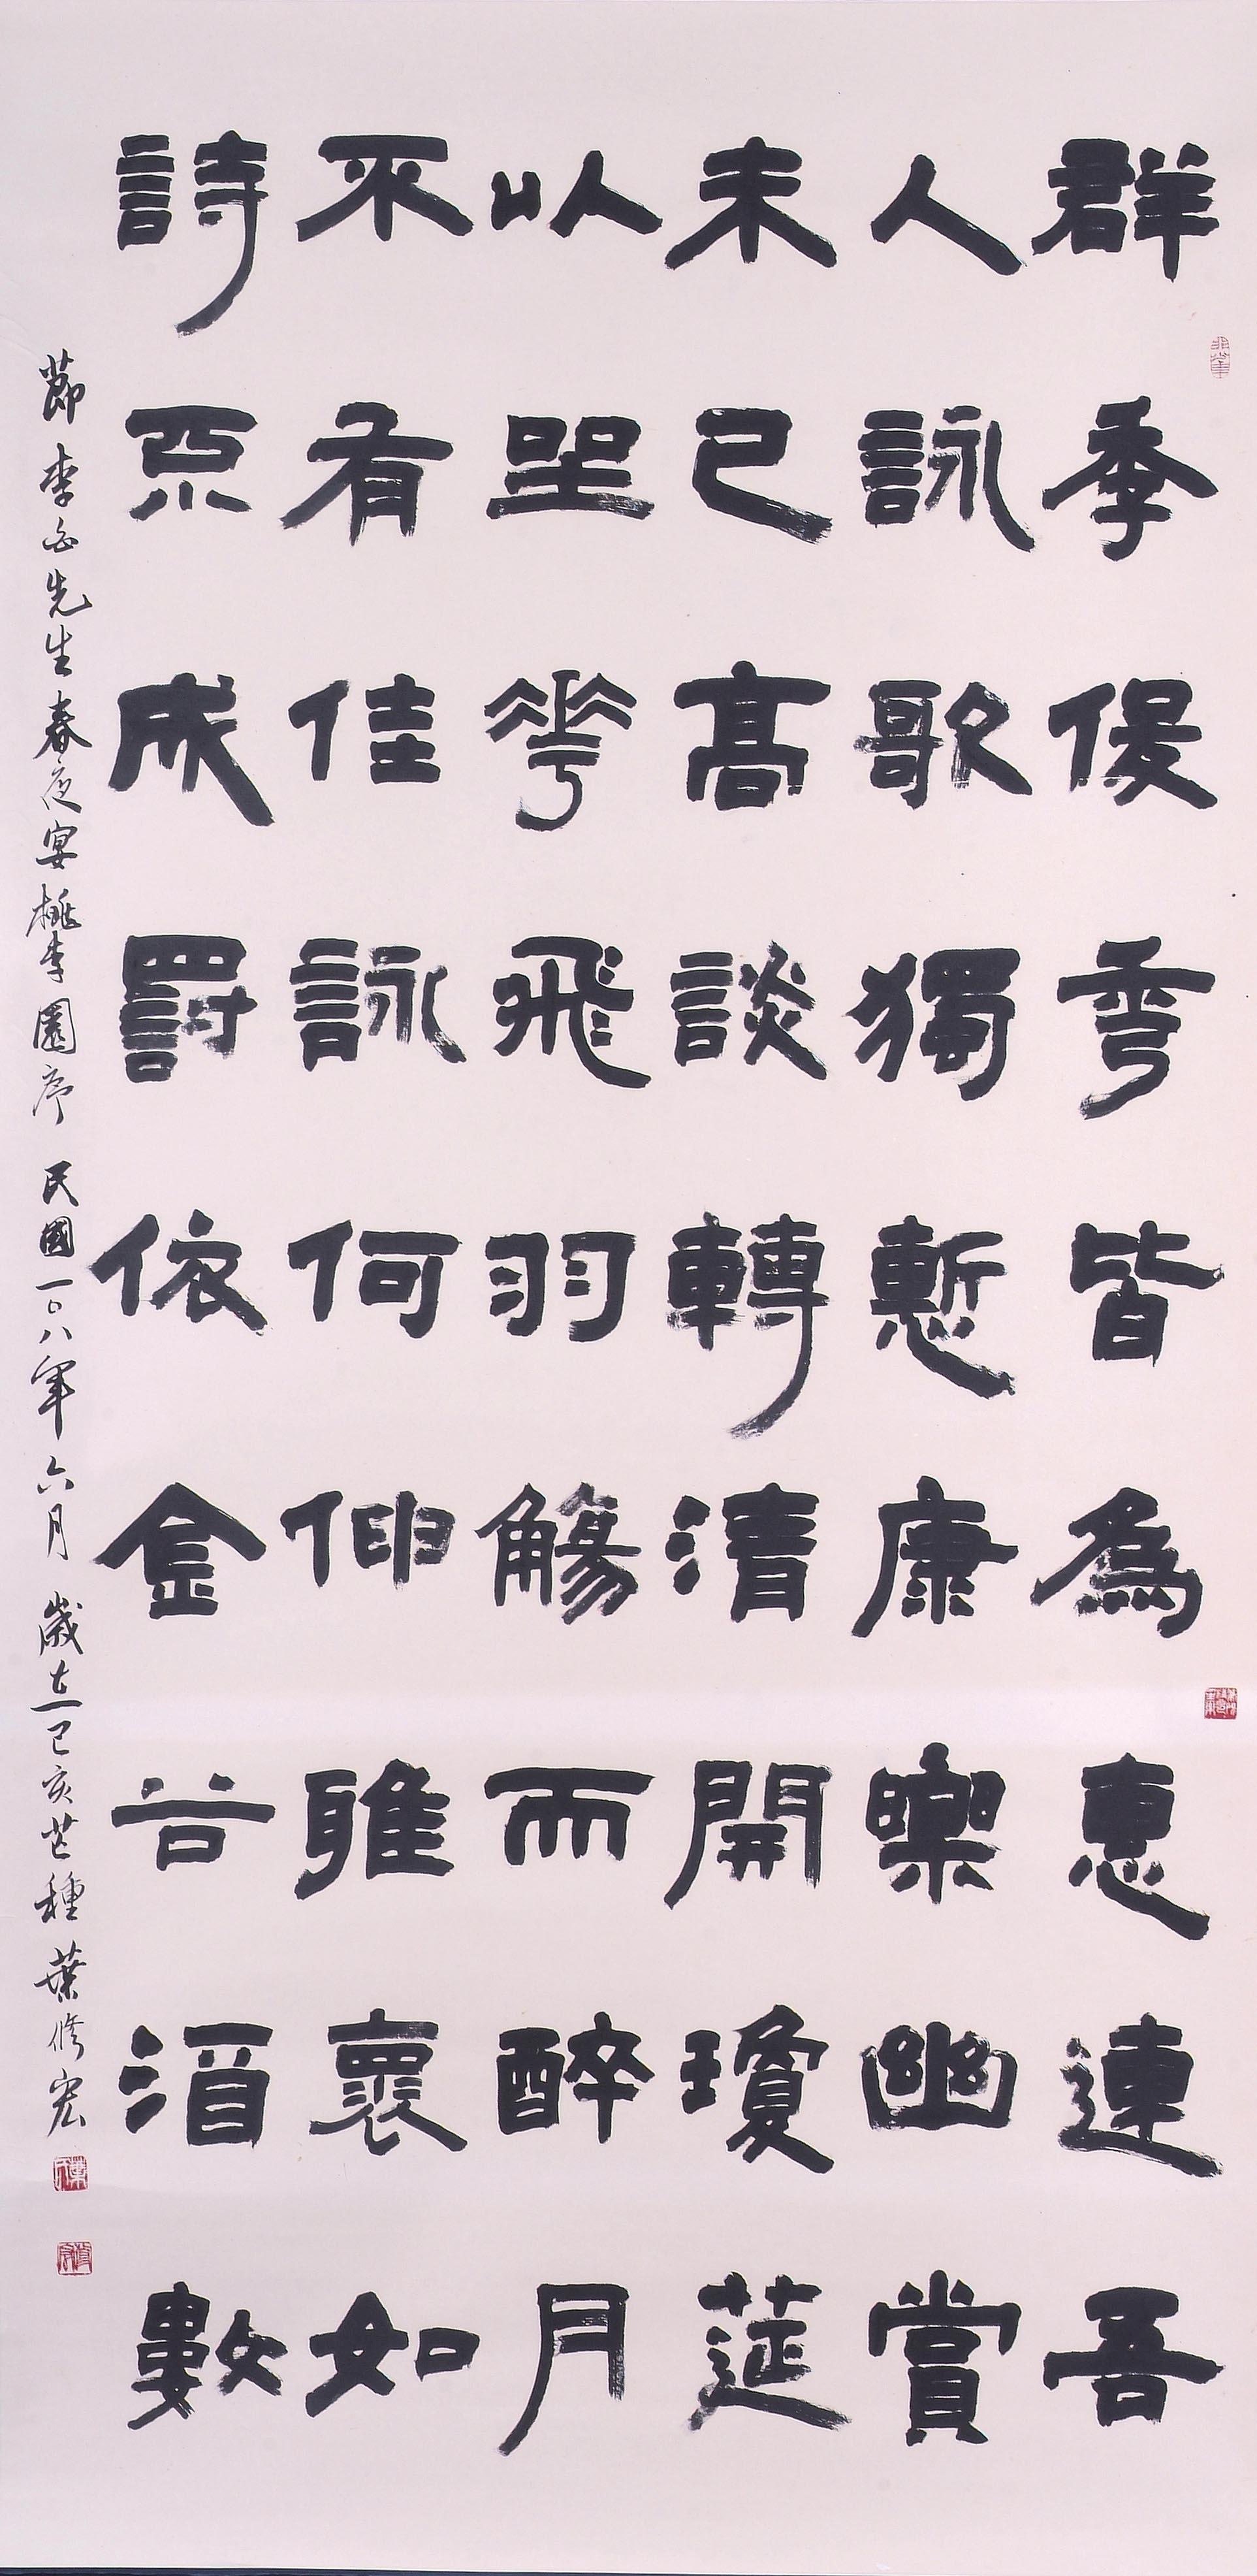 群季俊秀皆為惠連吾
人詠歌獨慙康樂幽賞
未已高談轉清開瓊筵
以坐花飛羽觴而醉月
不有佳詠何伸雅褱如
詩不成罰依金谷酒數
節李白先生春夜宴桃李園序 民國一〇八年六月 歲在己亥芒種 葉修宏